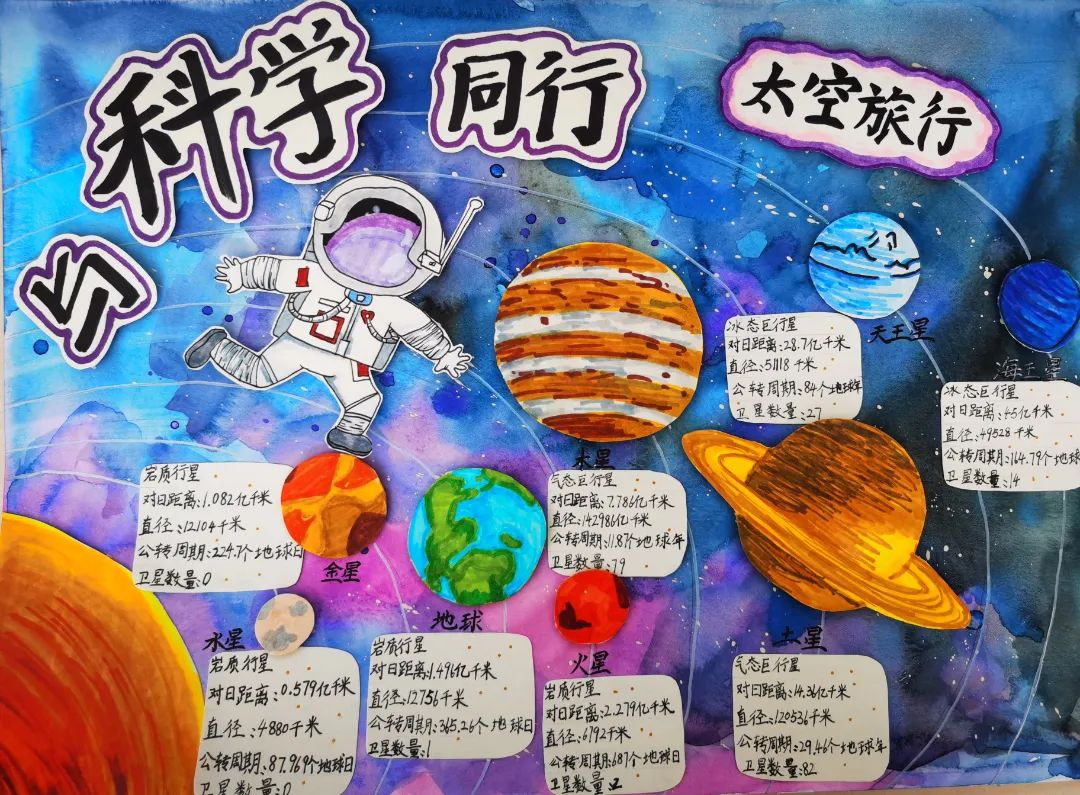 与
科学
同行
太空旅行
天王星
冰态巨行星
对日距离:28.7亿千米
直径:51118千米
公转周期:84个地球年
卫星数量:27
海王星
冰态巨行星
对日距离:45亿千米
直径:49528千米
公转周期:164.79个地球
卫星数量:14
木星
气态巨行星
对日距离:7.786亿千米
直径:142986亿千米
公转周期:11.87个地球年
卫星数量:79
金星
岩质行星
对日距离:1.082亿千米
直径:12104千米
公转周期:224.7个地球日
卫星数量:0
水星
岩质行星
对日距离:0.579亿千米
直径:4880千米
公转周期:87.969个地球日
卫星数量:0
地球
岩质行星
对日距离:1.496亿千米
直径:12756千米
公转周期:365.26个地球日
卫星数量:1
火星
岩质行星
对日距离:2.279亿千米
直径:6792千米
公转周期:687个地球日
卫星数量:2
土星
气态巨行星
对日距离:14.36亿千米
直径:120536千米
公转周期:29.46个地球年
卫星数量:82